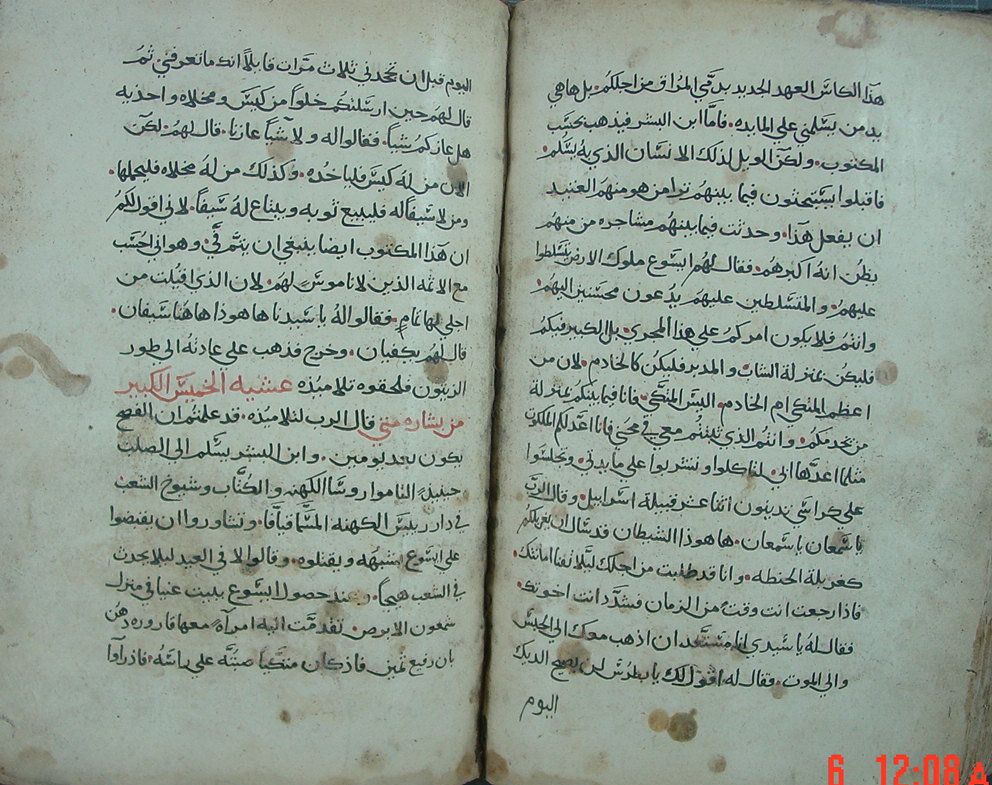 هذا الكاس العهد الجديد بدمي المزاق من اجلكم. بل ها هي
يد من يسلمني علي المايده. فاما ابن البشر فيذهب بحسب
المكتوب. ولكن الويل لذلك الانسان الذي به يسلم.
فاقبلوا يستبحثون فيما بينهم ترا من هو منهم العتيد
ان يفعل هذا. وحدثت فيما بينهم مشاجره من منهم
يظن انه اكبرهم. فقال لهم ايسوع ملوك الارض يتسلطوا
عليهم. والمتسلطين عليهم يدعون محسنين اليهم.
وانتم فلا يكون امركم علي هذا المجري. بل الكبير فيكم
فليكن بمنزلة الشاب والمدبر فليكن كالخادم. لان من
اعظم المتكي ام الخادم. اليس المتكي. فانا فيما بينكم بمنزلة
من يخدمكم. وانتم الذي تلبثتم معي في محني فانا اعد لكم الملكوت
مثلما اعدها ابي. لتاكلوا وتشربوا علي مايدتي. وتجلسوا
علي كراسي تدينون اثنا عشر قبيلة اسراييل. وقال الرب
يا سمعان يا سمعان. ها هوذا الشيطان قد سال ان يغربلكم
كغربلة الحنطه. وانا قد طلبت من اجلك ليلا تفنا امانتك.
فاذا رجعت انت وقت من الزمان فشدد انت اخوتك.
فقال له يا سيدي انا مستعد ان اذهب معك الي الحبس
والي الموت. فقال له اقول لك يا بطرس لن يصيح الديك
اليوم
اليوم قبل ان تجحدني ثلاث مرات قايلا انك ما تعرفني ثم
قال لهم حين ارسلتكم خلوا من كيس ومخلاه واحذيه
هل عازكم شيا. فقالوا له ولا شيا عازنا. قال لهم. لكن
الان من له كيس فلياخذه. وكذلك من له مخلاه فليحملها.
ومن لا سيفا له فليبيع ثوبه ويبتاع له سيفا. لاني اقول لكم
ان هذا المكتوب ايضا ينبغي ان يتم في. وهو اني احسب
مع الاثمه الذين لا ناموس لهم. لان الذي اقبلت من
اجلي لها تمام. فقالوا له يا سيدنا ها هوذا هاهنا سيفان.
قال لهم يكفيان. وخرج فذهب علي عادته الي طور
الزيتون فلحقوه تلاميذه عشية الخميس الكبير
من بشاره متي قال الرب لتلاميذه. قد علمتم ان الفصح
يكون بعد يومين. وابن البشر يسلم الي الصلب
حينيذ التاموا روسا الكهنه والكتاب وشيوخ الشعب
في دار رييس الكهنه المسما قيافا. وتشاوروا ان يقبضوا
علي ايسوع بشبهه ويقتلوه. وقالوا لا في العيد ليلا يحدث
في الشعب هيجا. وعند حصول ايسوع ببيت عنيا في منزل
شمعون الابرص. تقدمت اليه امراة معها قاروره دهن
بان رفيع ثمين فاذ كان متكيا صبته علي راسه. فاذ راوا
6 12:08 A